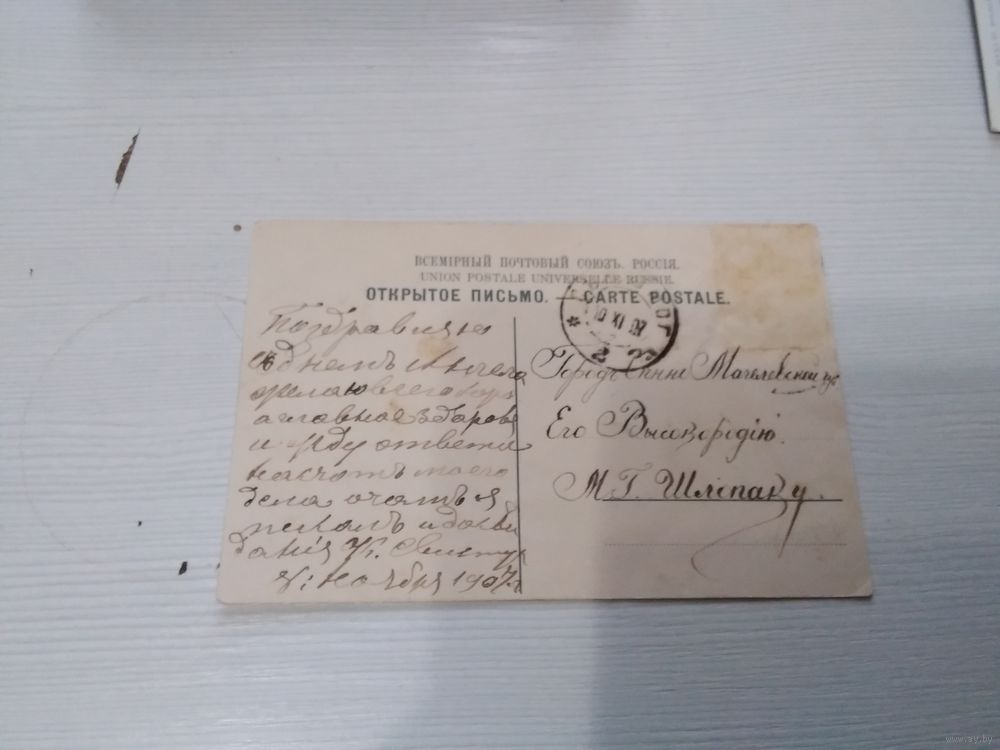 ВСЕМІРНЫЙ ПОЧТОВЫЙ СОЮЗЪ. РОССІЯ.
UNION POSTALE UNIVERSELLE RUSSIE.
ОТКРЫТОЕ ПИСЬМО. — CARTE POSTALE.
10 XI 07
2
Поздравляю
съ днемъ Ангела
желаю всего
а главное здоровья
и жду ответа
насчотъ моего
дела о чомъ я
писалъ и досви
данія
8: Ноября 1907 г.
Городъ Могилевской губ
Его Высокородію.
М. Г. Шлепаку.
www.ay.by